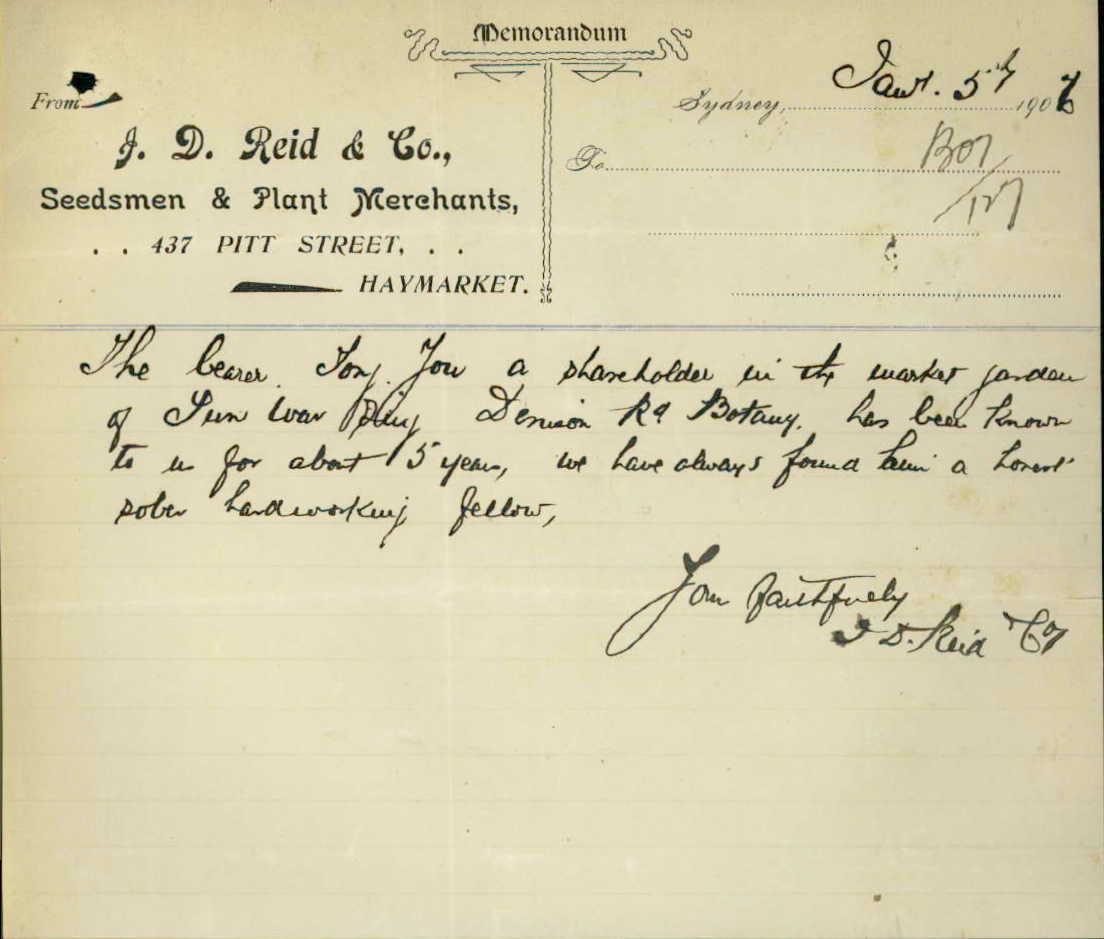 Memorandum
From
J. D. Reid & Co.,
Seedsmen & Plant Merchants,
. . 437 PITT STREET, . .
HAYMARKET.
Sydney, Jany. 5th 1906
To
The bearer Tong You a shareholder in the market garden
of Sun War Denison Rd Botany. has been known
to us for about 5 years, we have always found him a honest
sober hardworking fellow,
Yours faithfully
J D. Reid & Co